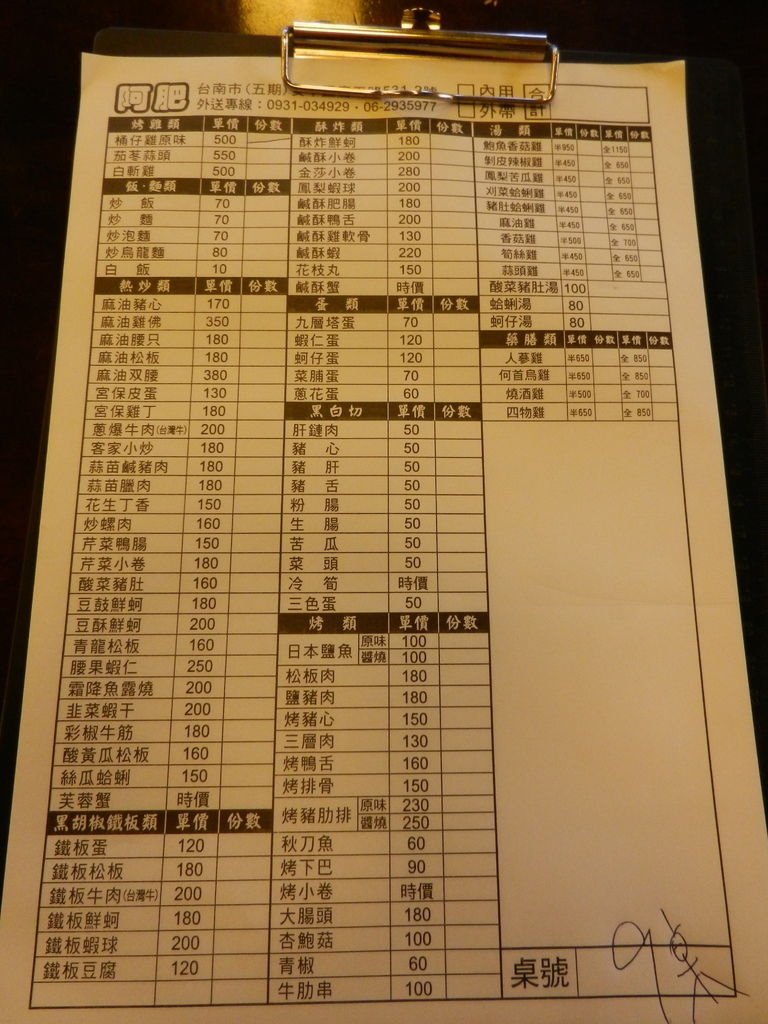 阿肥
台南市(五期)
外送專線：0931-034929・06-2935977
內用 合
外帶 計
烤雞類 單價 份數
桶仔雞原味 500
茄苳蒜頭 550
白斬雞 500
飯・麵類 單價 份數
炒 飯 70
炒 麵 70
炒泡麵 70
炒烏龍麵 80
白 飯 10
熱炒類 單價 份數
麻油豬心 170
麻油雞佛 350
麻油腰只 180
麻油松板 180
麻油双腰 380
宮保皮蛋 130
宮保雞丁 180
蔥爆牛肉(台灣牛) 200
客家小炒 180
蒜苗鹹豬肉 180
蒜苗臘肉 180
花生丁香 150
炒螺肉 160
芹菜鴨腸 150
芹菜小卷 180
酸菜豬肚 160
豆鼓鮮蚵 180
豆酥鮮蚵 200
青龍松板 160
腰果蝦仁 250
霜降魚露燒 200
韭菜蝦干 200
彩椒牛筋 180
酸黃瓜松板 160
絲瓜蛤蜊 150
芙蓉蟹 時價
黑胡椒鐵板類 單價 份數
鐵板蛋 120
鐵板松板 180
鐵板牛肉(台灣牛) 200
鐵板鮮蚵 180
鐵板蝦球 200
鐵板豆腐 120
酥炸類 單價 份數
酥炸鮮蚵 180
鹹酥小卷 200
金莎小卷 280
鳳梨蝦球 200
鹹酥肥腸 180
鹹酥鴨舌 200
鹹酥雞軟骨 130
鹹酥蝦 220
花枝丸 150
鹹酥蟹 時價
蛋 類 單價 份數
九層塔蛋 70
蝦仁蛋 120
蚵仔蛋 120
菜脯蛋 70
蔥花蛋 60
黑白切 單價 份數
肝鏈肉 50
豬 心 50
豬 肝 50
豬 舌 50
粉 腸 50
生 腸 50
苦 瓜 50
菜 頭 50
冷 筍 時價
三色蛋 50
烤 類 單價 份數
日本鹽魚 原味 100
醬燒 100
松板肉 180
鹽豬肉 180
烤豬心 150
三層肉 130
烤鴨舌 160
烤排骨 150
烤豬肋排 原味 230
醬燒 250
秋刀魚 60
烤下巴 90
烤小卷 時價
大腸頭 180
杏鮑菇 100
青椒 60
牛肋串 100
湯 類 單價 份數 單價 份數
鮑魚香菇雞 半950 全1150
剝皮辣椒雞 半450 全 650
鳳梨苦瓜雞 半450 全 650
刈菜蛤蜊雞 半450 全 650
豬肚蛤蜊雞 半450 全 650
麻油雞 半450 全 650
香菇雞 半500 全 700
筍絲雞 半450 全 650
蒜頭雞 半450 全 650
酸菜豬肚湯 100
蛤蜊湯 80
蚵仔湯 80
藥膳類 單價 份數 單價 份數
人蔘雞 半650 全 850
何首烏雞 半650 全 850
燒酒雞 半500 全 700
四物雞 半650 全 850
桌號